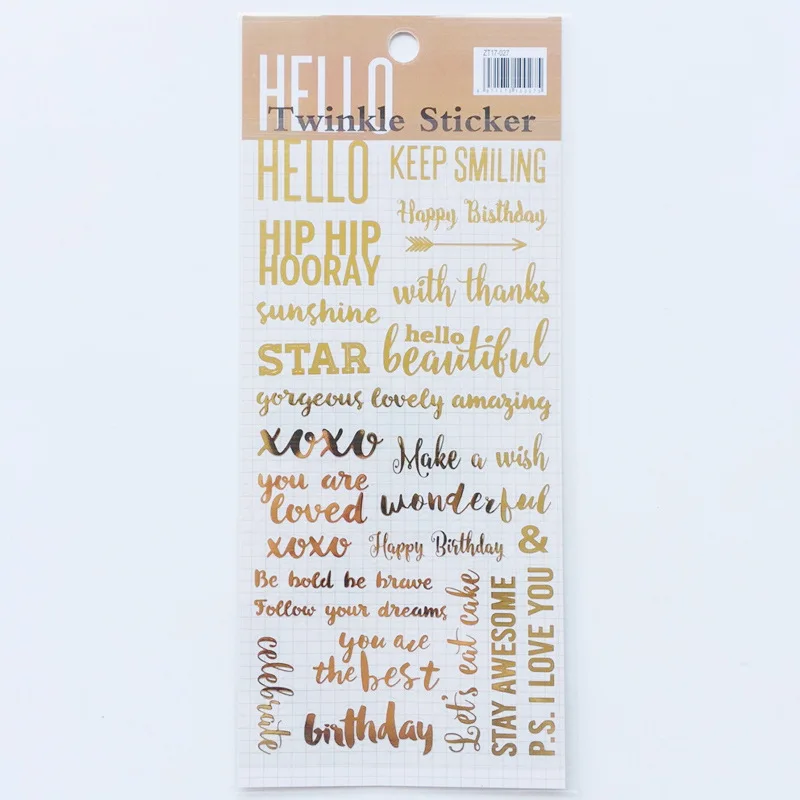 HELLO
ZT17-027
Twinkle Sticker
HELLO
KEEP SMILING
Happy Birthday
HIP HIP
HOORAY
with thanks
sunshine
hello
beautiful
STAR
gorgeous lovely amazing
xoxo
Make a wish
you are
loved
wonderful
xoxo
Happy Birthday
&
Be bold be brave
Follow your dreams
celebrate
you are
the best
birthday
Let's eat cake
STAY AWESOME
P.S. I LOVE YOU